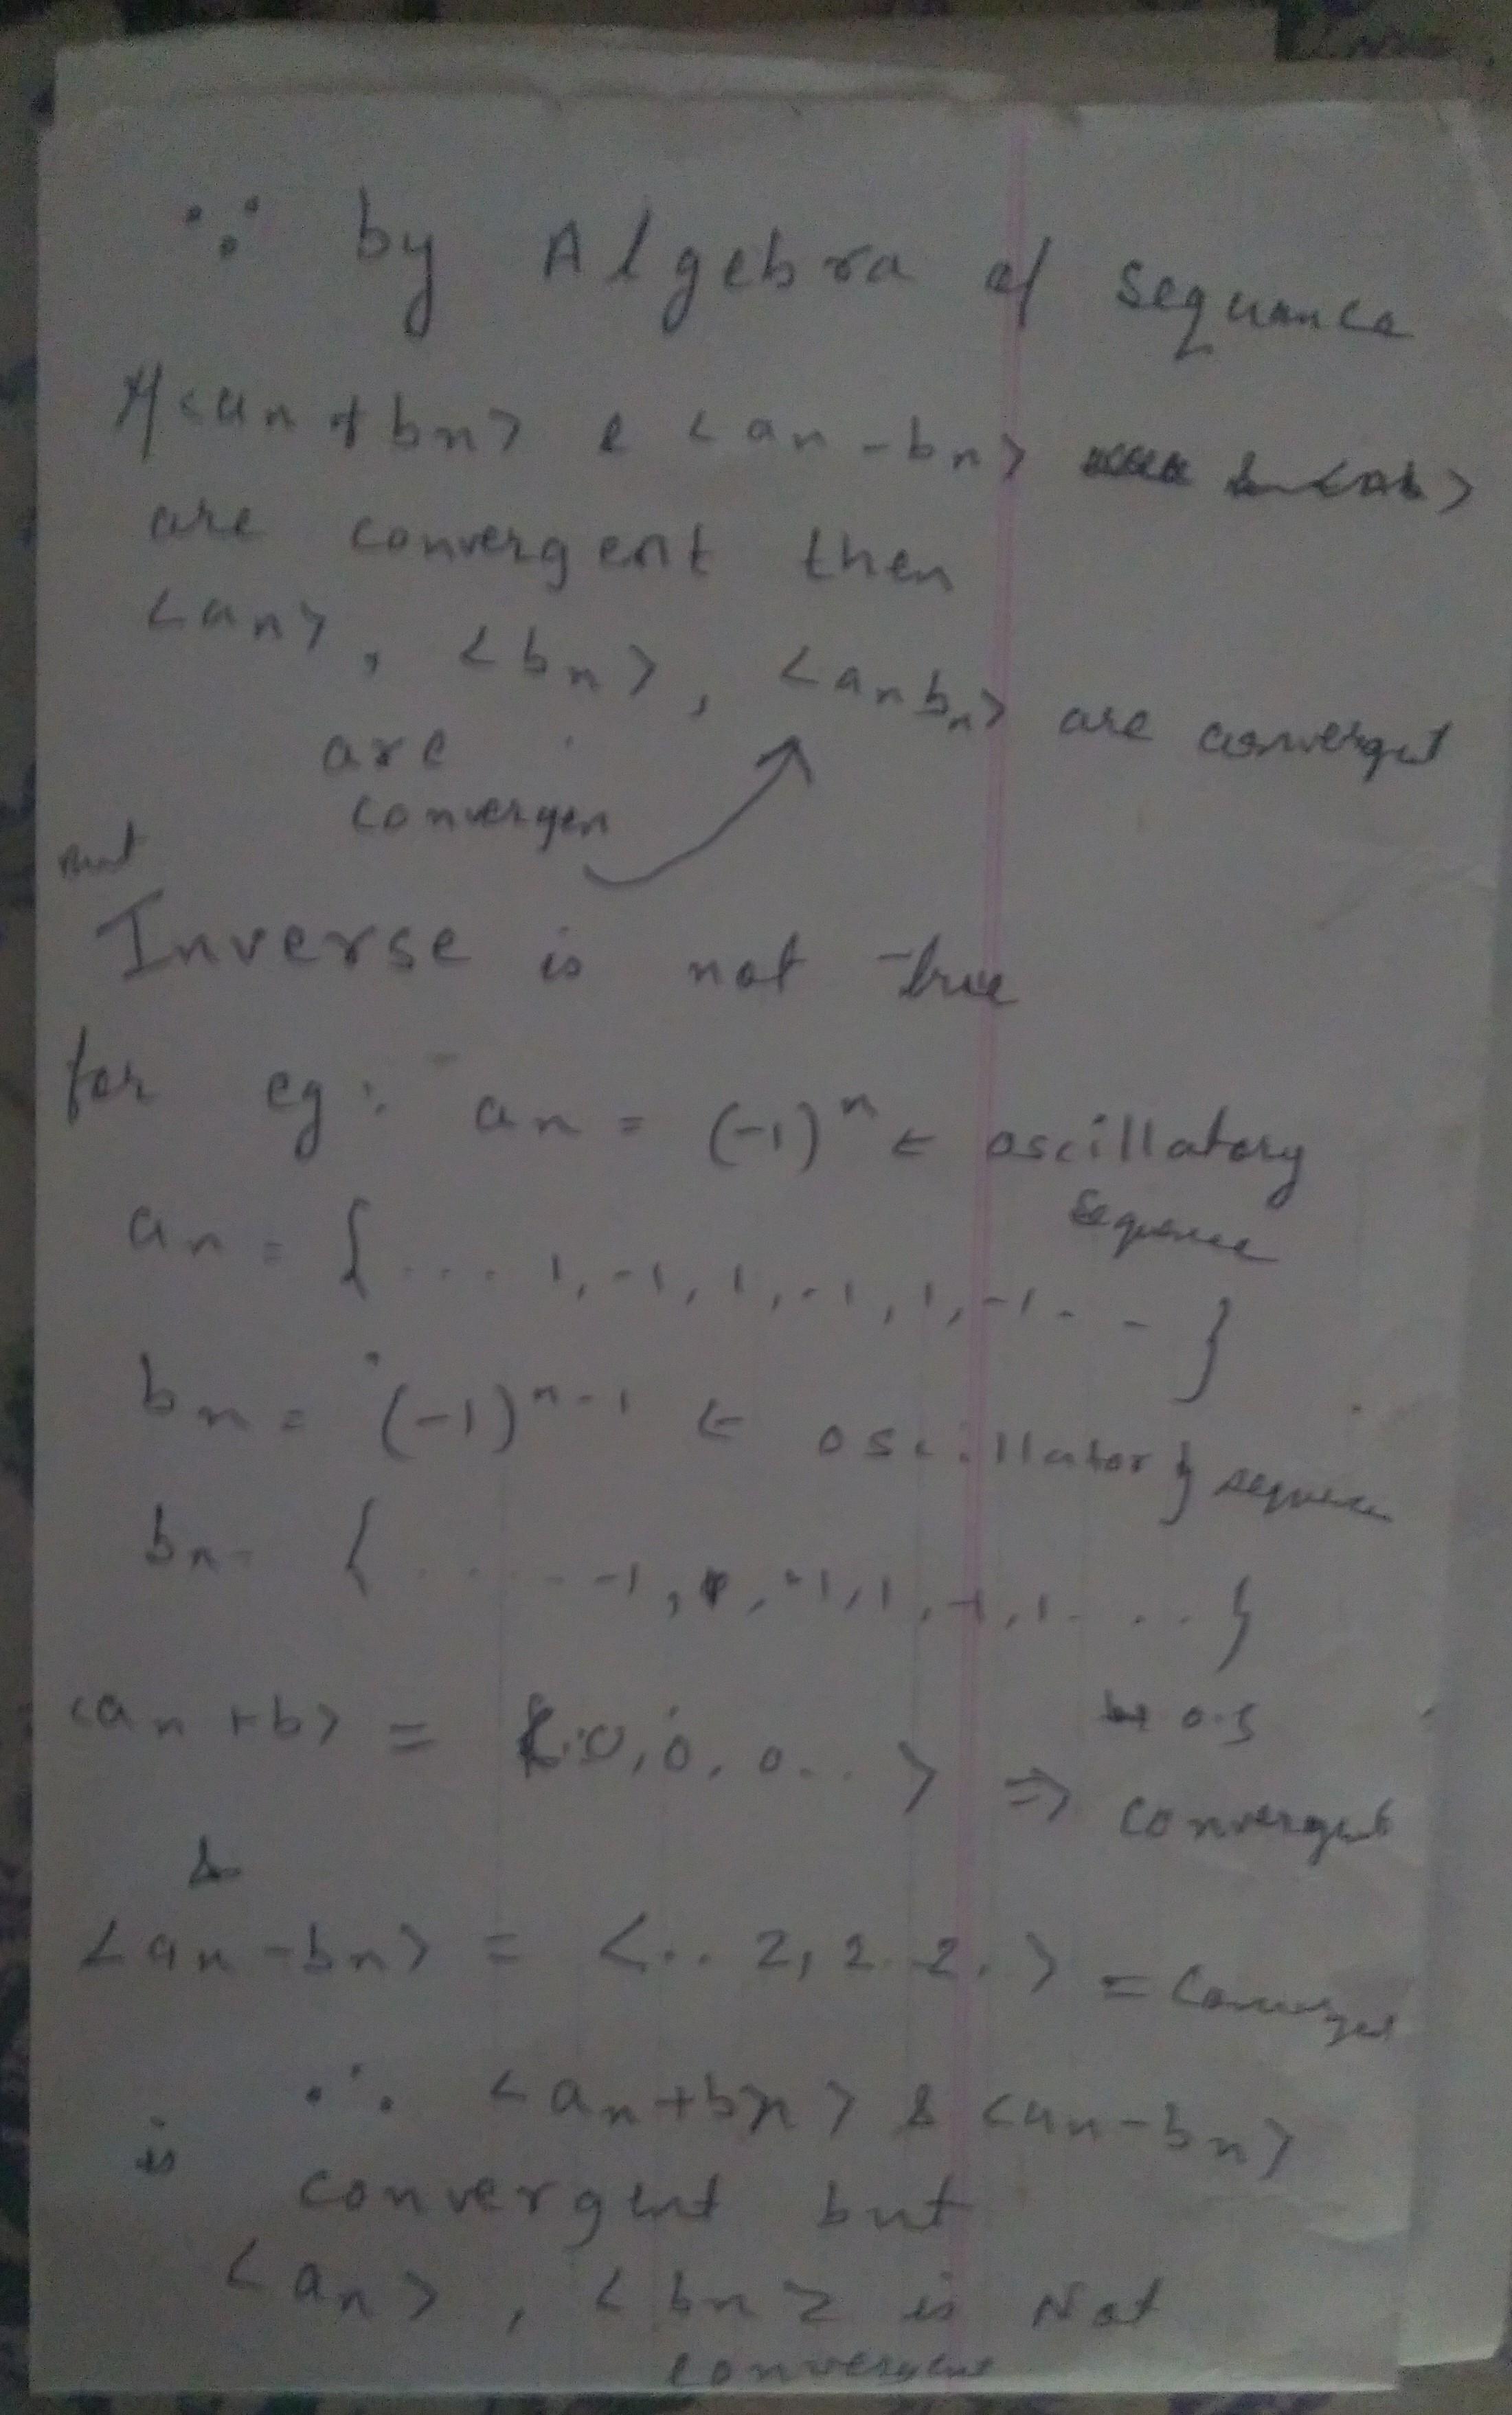 ∵ by Algebra of Sequance
If <an + bn> & <an - bn>
are convergent then
<an>, <bn>, <an bn> are convergent
are
convergen
Inverse is not true
for eg: an = (-1)^n ← oscillatory
Sequence
an = { .... 1, -1, 1, -1, 1, -1 - - }
bn = (-1)^n-1 ← oscillatory sequence
bn = { ..... -1, 1, -1, 1, -1, 1 .... }
<an + b> = <.0, 0, 0... > ⇒ convergent
&
<an - bn> = <.. 2, 2. 2. > = Converget
∴ <an + bn> & <an - bn>
is convergent but
<an>, <bn> is Not
convergent